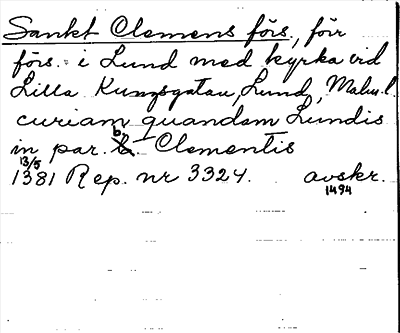 Sankt Clemens förs., förr
förs. i Lund med kyrka vid
Lilla Kungsgatan, Lund, Malm.l.
curiam quandam Lundis
in par. b. Clementis
13/5
1381 Rep. nr 3324. avskr.
1494